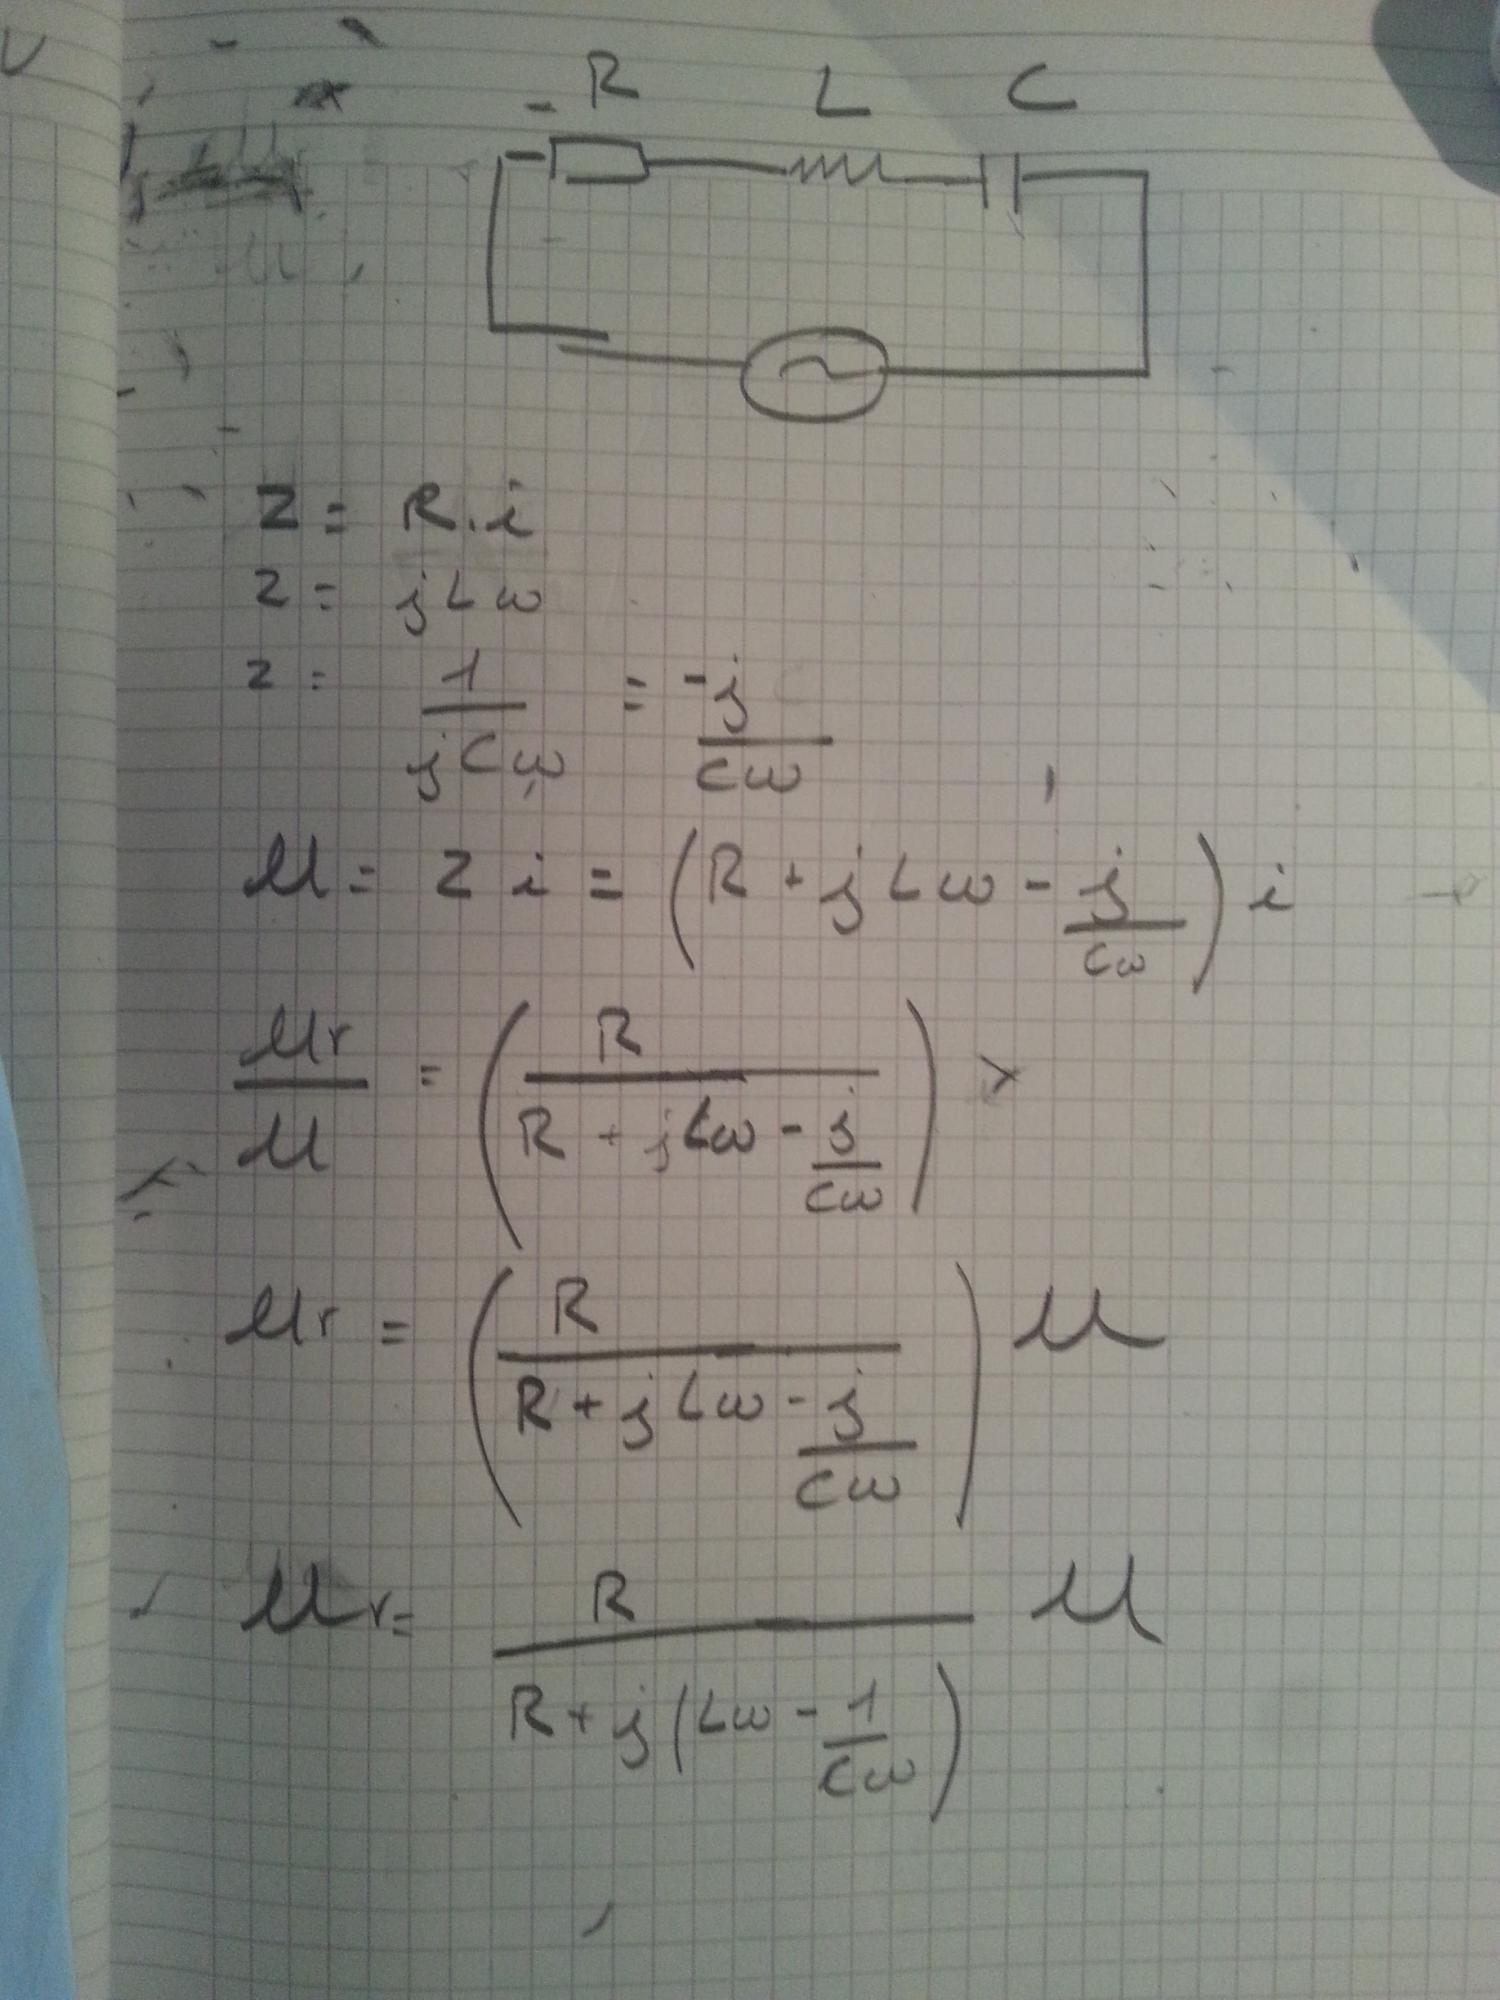 R L C
Z = R.i
Z = jLω
Z = 1/jCω = -j/Cω
U = Z i = (R + jLω - j/Cω) i
Ur/U = (R/(R + jLω - j/Cω)) ×
Ur = (R/(R + jLω - j/Cω)) U
Ur = R/(R + j(Lω - 1/Cω)) U